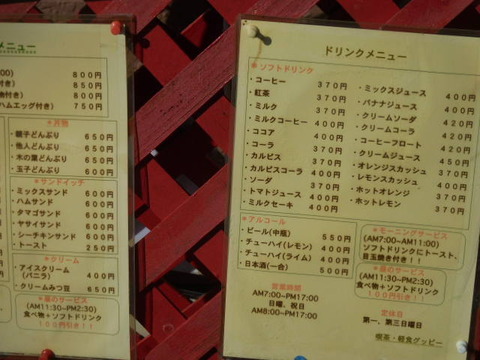 メニュー
800円
850円
ハムエッグ付き) 750円
＊丼物
・親子どんぶり 650円
・他人どんぶり 650円
・木の葉どんぶり 650円
・玉子どんぶり 600円
＊サンドイッチ
・ミックスサンド 600円
・ハムサンド 600円
・タマゴサンド 600円
・ヤサイサンド 600円
・シーチキンサンド 600円
・トースト 250円
＊クリーム
・アイスクリーム
(バニラ) 400円
・クリームみつ豆 650円
＊昼のサービス
(AM11:30~PM2:30)
食べ物＋ソフトドリンク
100円引き！！
ドリンクメニュー
＊ソフトドリンク
・コーヒー 370円
・紅茶 370円
・ミルク 370円
・ミルクコーヒー 400円
・ココア 400円
・コーラ 370円
・カルピス 370円
・カルピスコーラ 400円
・ソーダ 370円
・トマトジュース 400円
・ミルクセーキ 400円
・ミックスジュース 400円
・バナナジュース 400円
・クリームソーダ 420円
・クリームコーラ 420円
・コーヒーフロート 420円
・クリームジュース 450円
・オレンジスカッシュ 370円
・レモンスカッシュ 400円
・ホットオレンジ 370円
・ホットレモン 370円
＊アルコール
・ビール(中瓶) 550円
・チューハイ(レモン) 400円
・チューハイ(ライム) 400円
・日本酒(一合) 500円
＊モーニングサービス
(AM7:00~AM11:00)
ソフトドリンクにトースト、
目玉焼き付き！！
＊昼のサービス
(AM11:30~PM2:30)
食べ物＋ソフトドリンク
100円引き！！
営業時間
AM7:00~PM17:00
日曜、祝日
AM8:00~PM17:00
定休日
第一、第三日曜日
喫茶・軽食グッピー